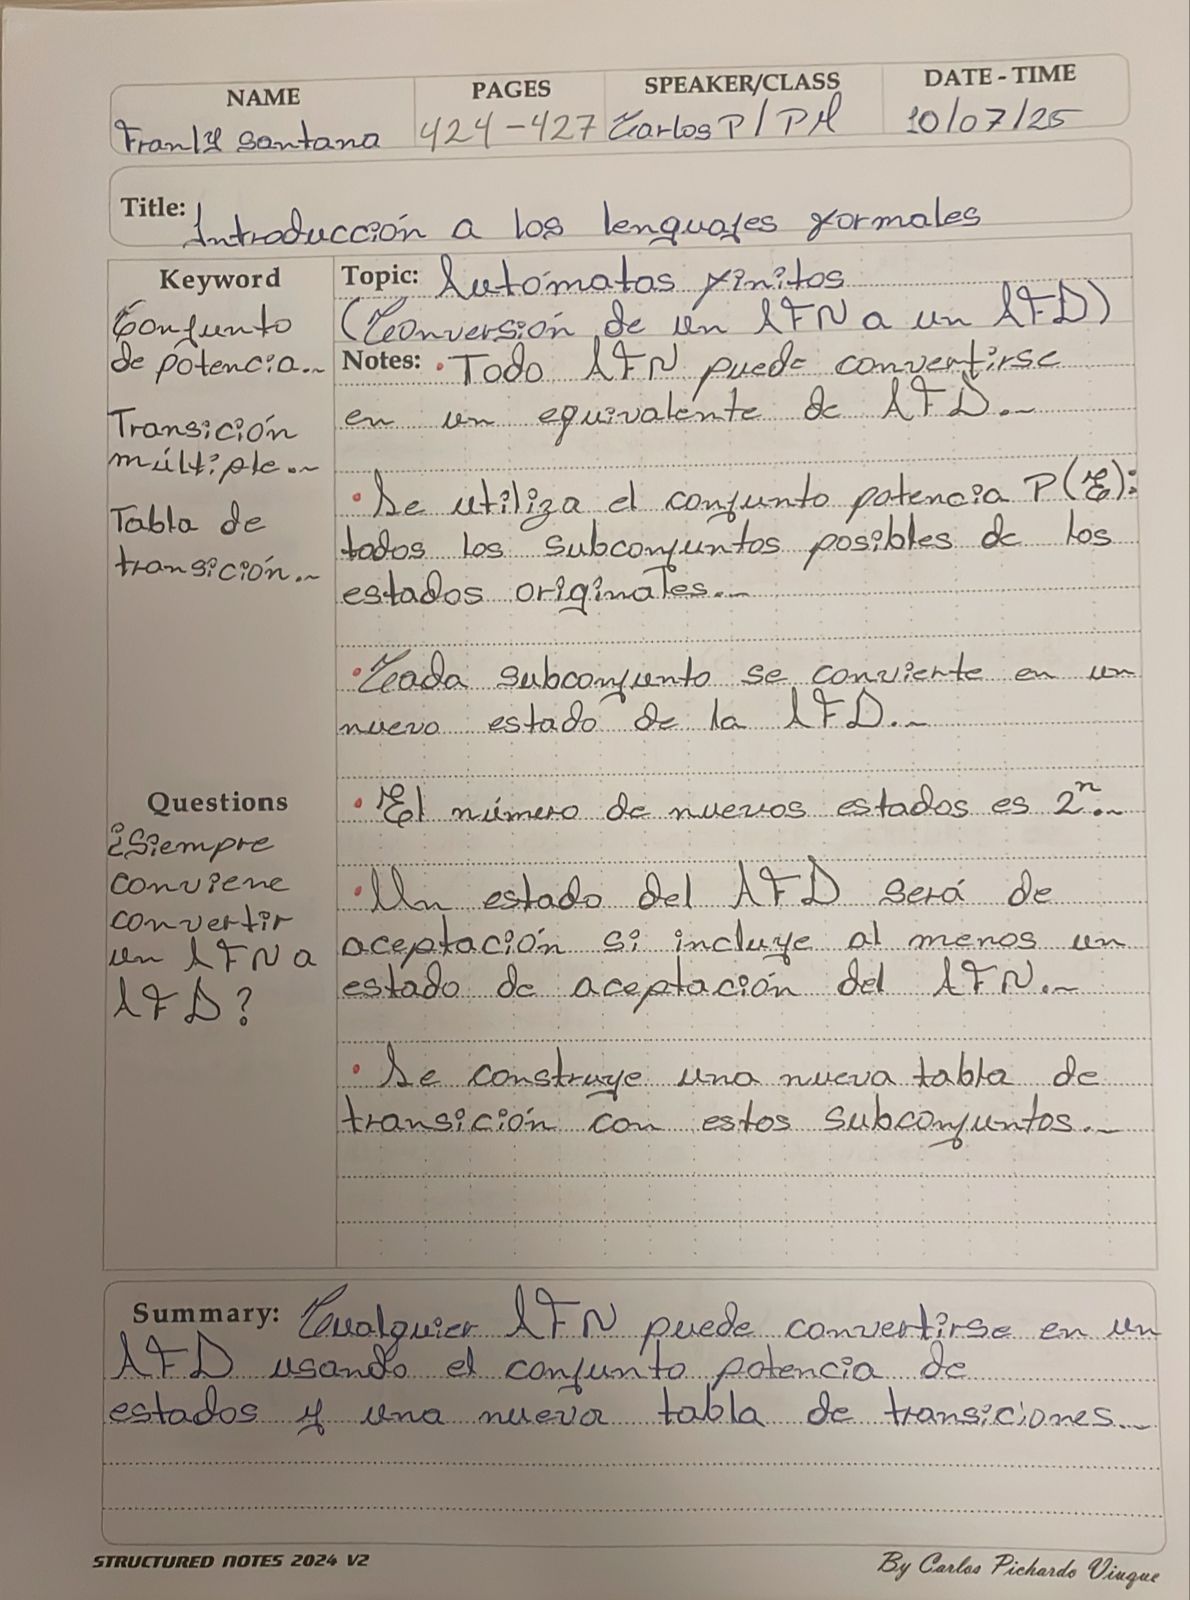 NAME PAGES SPEAKER/CLASS DATE - TIME
Franly Santana 424-427 Carlos P/PM 10/07/25
Title: Introducción a los lenguajes formales
Keyword
Conjunto
de potencia..
Transición
múltiple..
Tabla de
transición..
Questions
¿Siempre
conviene
convertir
un AFN a
AFD?
Topic: Autómatas finitos
(Conversión de un AFN a un AFD)
Notes: • Todo AFN puede convertirse
en un equivalente de AFD..
• Se utiliza el conjunto potencia P(E):
todos los subconjuntos posibles de los
estados originales..
• Cada subconjunto se conviente en un
nuevo estado de la AFD..
• El número de nuevos estados es 2ⁿ..
• Un estado del AFD será de
aceptación si incluye al menos un
estado de aceptación del AFN..
• Se construye una nueva tabla de
transición con estos subconjuntos..
Summary: Cualquier AFN puede convertirse en un
AFD usando el conjunto potencia de
estados y una nueva tabla de transiciones..
STRUCTURED NOTES 2024 V2
By Carlos Pichardo Viuque